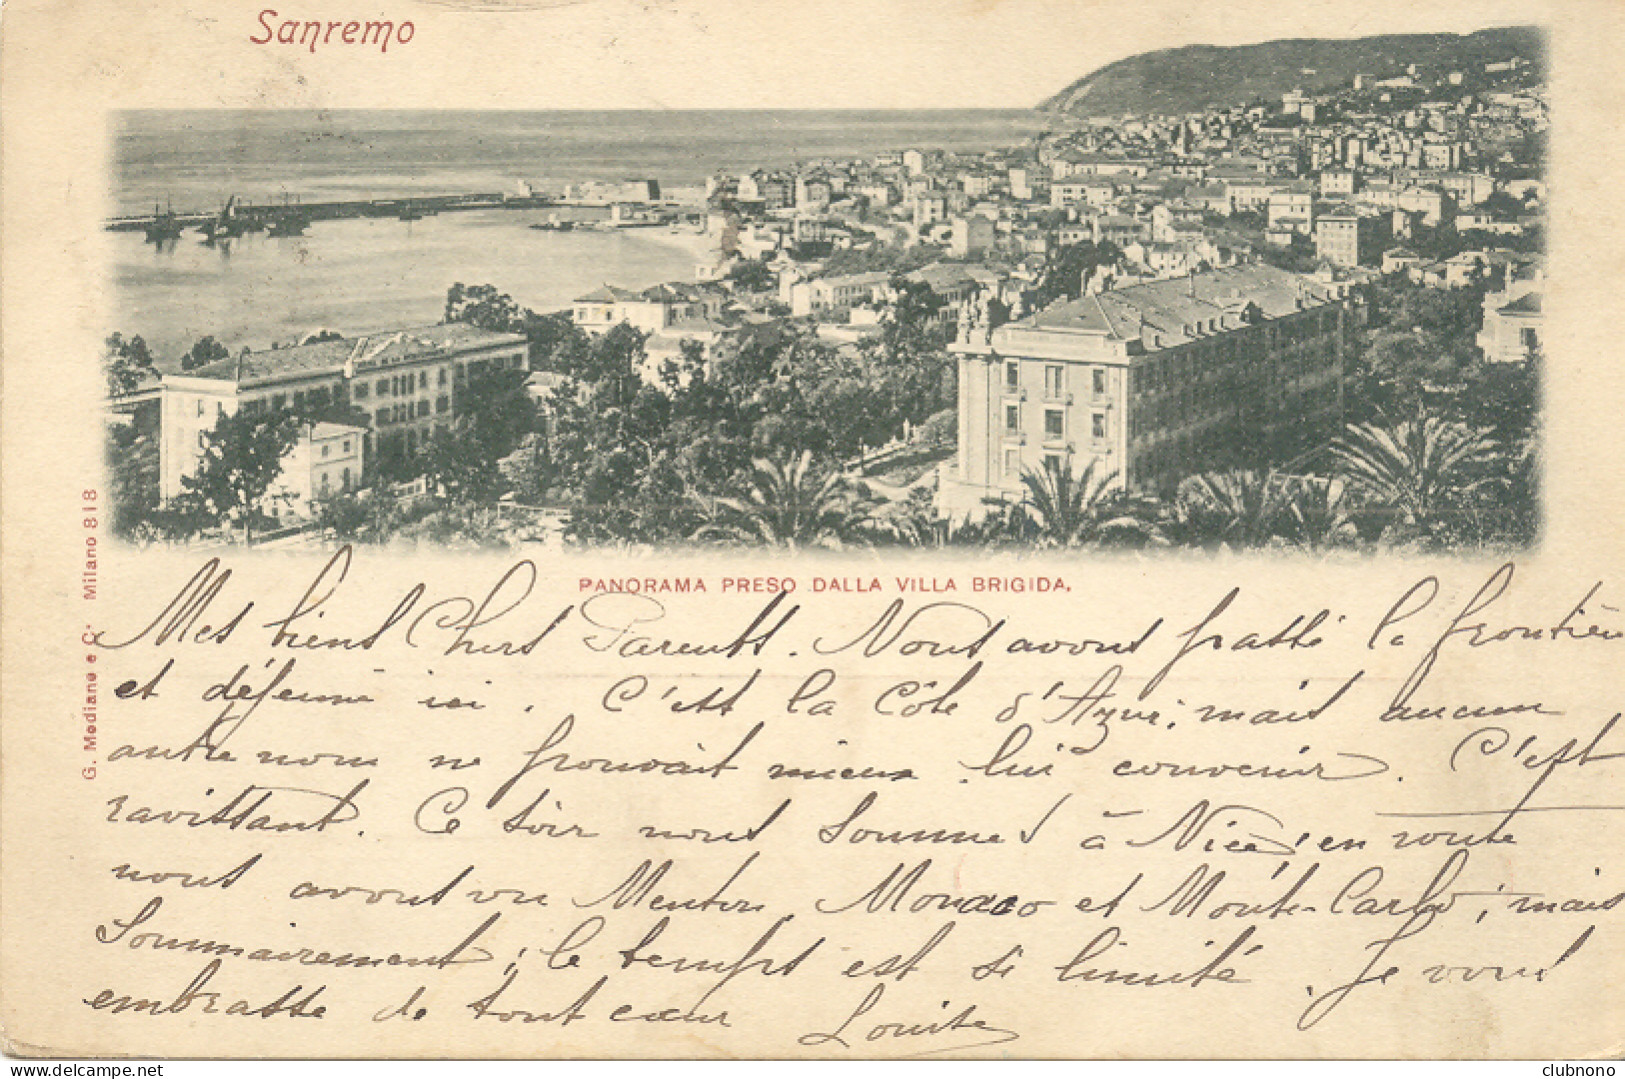 Sanremo
PANORAMA PRESO DALLA VILLA BRIGIDA.
G. Modiano e C. Milano 818
Mes biens Chers Parents. Nous avons passé la frontière
et déjeuné ici. C'est la Côte d'Azur; mais aucun
autre nom ne pouvait mieux lui convenir. C'est
ravissant. Ce soir nous sommes à Nice; en route
nous avons vu Menton, Monaco et Monte-Carlo; mais
Sommairement; le temps est si limité. Je vous
embrasse de tout cœur Louise
delcampe.net
clubnono